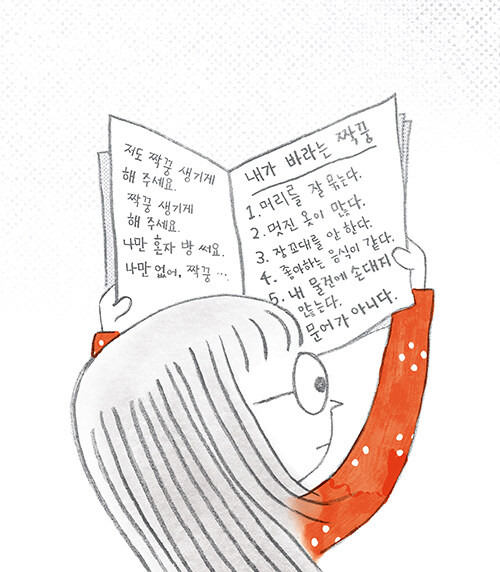 저도 짝꿍 생기게
해 주세요.
짝꿍 생기게
해 주세요.
나만 혼자 방 써요.
나만 없어, 짝꿍 …
내가 바라는 짝꿍
1. 머리를 잘 묶는다.
2. 멋진 옷이 많다.
3. 잠꼬대를 안 한다.
4. 좋아하는 음식이 같다.
5. 내 물건에 손대지
않는다.
문어가 아니다.